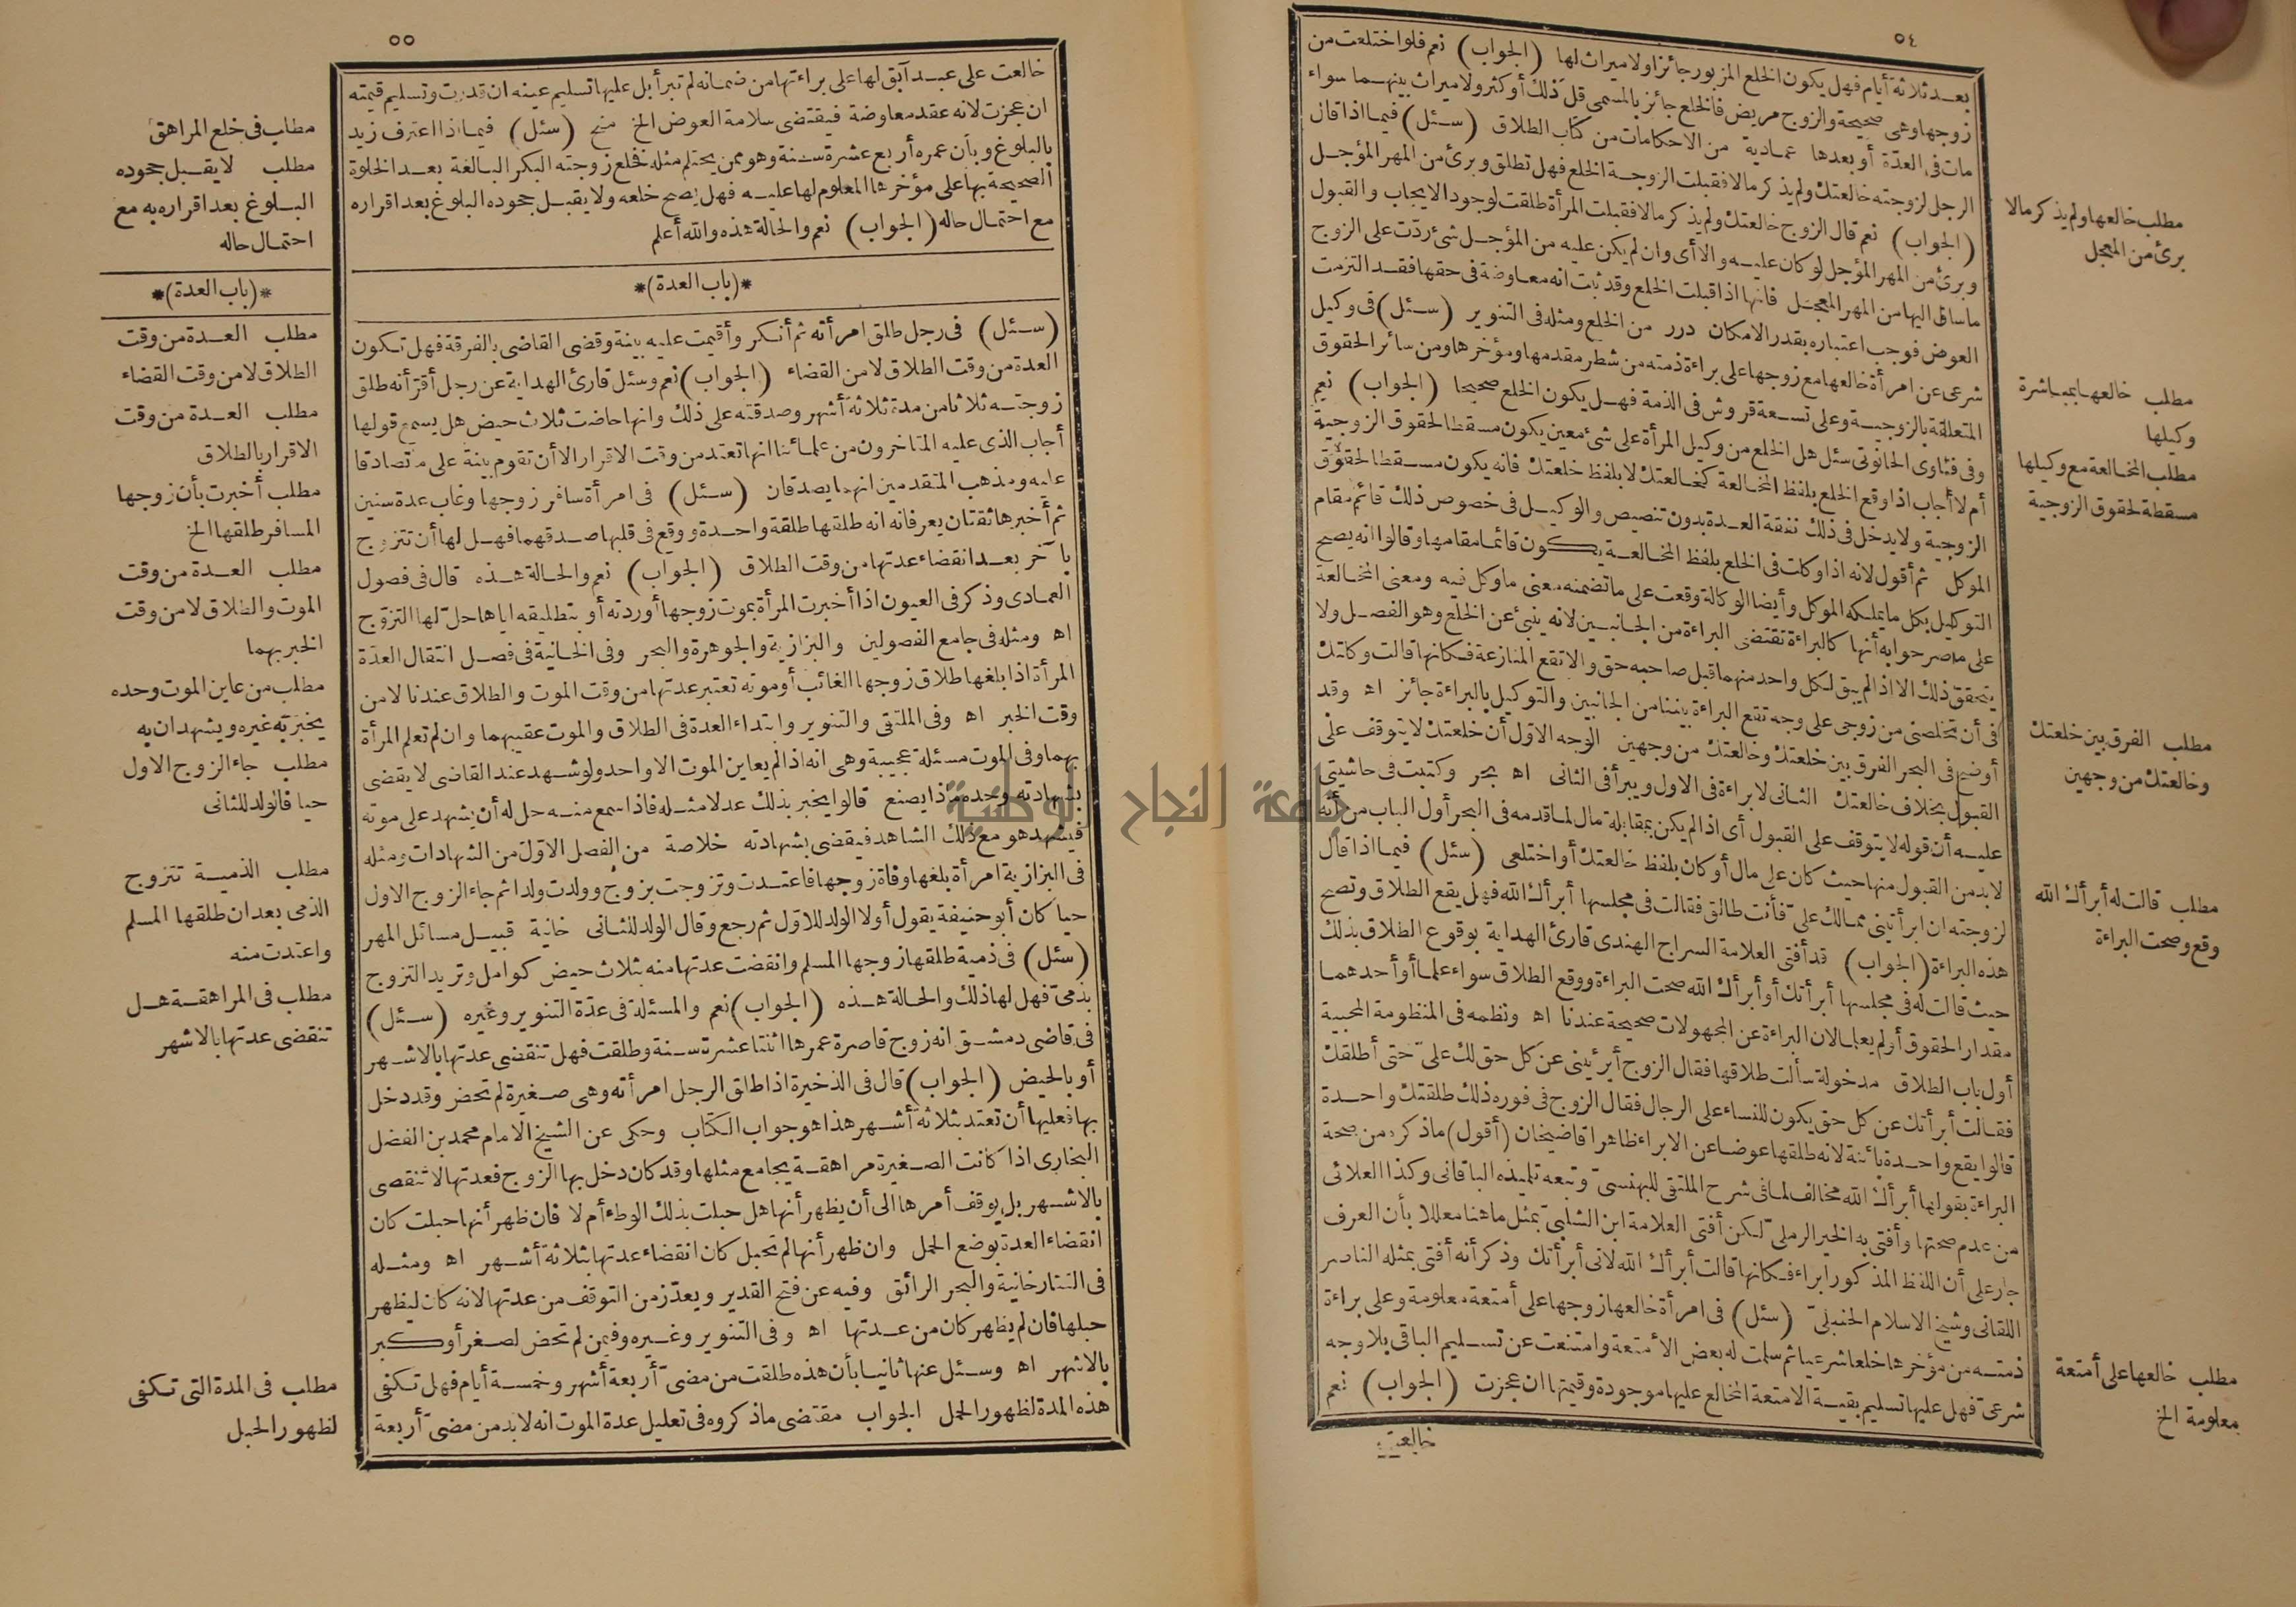 ٥٤
بعد ثلاثة أيام فهل يكون الخلع المزبور جائزا ولا ميراث لها (الجواب) نعم فلو اختلعت من
زوجها وهى صحيحة والزوج مريض فالخلع جائز بالمسمى قل ذلك أو كثر ولا ميراث بينهما سواء
مات فى العدّة أو بعدها عمادية من الاحكامات من كتاب الطلاق (سئل) فيما اذا قال
الرجل لزوجته خالعتك ولم يذكر مالا فقبلت الزوجة الخلع فهل تطلق وبرئ من المهر المؤجل
(الجواب) نعم قال الزوج خالعتك ولم يذكر مالا فقبلت المرأة طلقت لوجود الايجاب والقبول
وبرئ من المهر المؤجل لو كان عليه والا أى وان لم يكن عليه من المؤجل شئ ردّت على الزوج
ما ساق اليها من المهر المعجّل فانها اذا قبلت الخلع وقد ثبت انه معاوضة فى حقها فقد التزمت
العوض فوجب اعتباره بقدر الامكان درر من الخلع ومثله فى التنوير (سئل) فى وكيل
شرعى عن امرأة خالعها مع زوجها على براءة ذمته من شطر مقدمها ومؤخرها ومن سائر الحقوق
المتعلقة بالزوجية وعلى تسعة قروش فى الذمة فهل يكون الخلع صحيحا (الجواب) نعم
وفى فتاوى الحانوتى سئل هل الخلع من وكيل المرأة على شئ معين يكون مسقطا لحقوق الزوجية
أم لا أجاب اذا وقع الخلع بلفظ المخالعة كخالعتك لا بلفظ خلعتك فانه يكون مسقطا لحقوق
الزوجية ولا يدخل فى ذلك نفقة العدة بدون تنصيص والوكيل فى خصوص ذلك قائم مقام
الموكل ثم أقول لانه اذا وكات فى الخلع بلفظ المخالعة يكون قائما مقامها وقالوا انه يصح
التوكيل بكل ما يملكه الموكل وأيضا الوكالة وقعت على ما تضمنه معنى ما وكل فيه ومعنى المخالعة
على ما صرحوا به أنها كالبراءة تقتضى البراءة من الجانبين لانه ينبئ عن الخلع وهو الفصل ولا
يتحقق ذلك الا اذا لم يبق لكل واحد منهما قبل صاحبه حق والا تقع المنازعة فكانها قالت وكاتك
فى أن تخلصنى من زوجى على وجه تقع البراءة بيننا من الجانبين والتوكيل بالبراءة جائز اه وقد
أوضح فى البحر الفرق بين خلعتك وخالعتك من وجهين الوجه الاول أن خلعتك لا يتوقف على
القبول بخلاف خالعتك الثانى لا براءة فى الاول ويبرأ فى الثانى اه بحر وكتبت فى حاشيتى
عليه أن قوله لا يتوقف على القبول أى اذا لم يكن بمقابلة مال لما قدمه فى البحر أول الباب من أنه
لا بد من القبول منها حيث كان على مال أو كان بلفظ خالعتك أو اختلعى (سئل) فيما اذا قال
لزوجته ان ابرأتينى مما لك علىّ فأنت طالق فقالت فى مجلسها أبرأك الله فهل يقع الطلاق وتصح
هذه البراءة (الجواب) قد أفتى العلامة السراج الهندى قارئ الهداية بوقوع الطلاق بذلك
حيث قالت له فى مجلسها أبرأتك أو أبرأك الله صحت البراءة ووقع الطلاق سواء علما أو أحدهما
مقدار الحقوق أو لم يعلما لان البراءة عن المجهولات صحيحة عندنا اه ونظمه فى المنظومة المحبية
أول باب الطلاق مدخولة سألت طلاقها فقال الزوج أبرئينى عن كل حق لك علىّ حتى أطلقك
فقالت أبرأتك عن كل حق يكون للنساء على الرجال فقال الزوج فى فوره ذلك طلقتك واحدة
قالوا يقع واحدة بائنة لانه طلقها عوضا عن الابراء ظاهرا قاضيخان (أقول) ما ذكره من صحة
البراءة بقولها أبرأك الله مخالف لما فى شرح الملتقى للبهنسىّ وتبعه تلميذه الباقانى وكذا العلائى
من عدم صحتها وأفتى به الخير الرملىّ لكن أفتى العلامة ابن الشلبىّ بمثل ما هنا معللا بأن العرف
جار على أن اللفظ المذكور ابراء فكانها قالت أبرأك الله لانى أبرأتك وذكر أنه أفتى بمثله الناصر
اللقانى وشيخ الاسلام الحنبلىّ (سئل) فى امرأة خالعها زوجها على أمتعة معلومة وعلى براءة
ذمته من مؤخرها خلعا شرعيا ثم سلمت له بعض الامتعة وامتنعت عن تسليم الباقى بلا وجه
شرعىّ فهل عليها تسليم بقية الامتعة المخالع عليها موجودة وقيمتها ان عجزت (الجواب) نعم
خالعت
مطلب خالعها ولم يذكر مالا
برئ من المعجل
مطلب خالعها بمباشرة
وكيلها
مطلب المخالعة مع وكيلها
مسقطة لحقوق الزوجية
مطلب الفرق بين خلعتك
وخالعتك من وجهين
مطلب قالت له أبرأك الله
وقع وصحت البراءة
مطلب خالعها على أمتعة
معلومة الخ
٥٥
خالعت على عبد آبق لها على براءتها من ضمانه لم تبرأ بل عليها تسليم عينه ان قدرت وتسليم قيمته
ان عجزت لانه عقد معاوضة فيقتضى سلامة العوض الخ منح (سئل) فيما اذا اعترف زيد
بالبلوغ وبأن عمره أربع عشرة سنة وهو ممن يحتلم مثله فخلع زوجته البكر البالغة بعد الخلوة
الصحيحة بها على مؤخرها المعلوم لها عليه فهل يصح خلعه ولا يقبل جحوده البلوغ بعد اقراره
مع احتمال حاله (الجواب) نعم والحالة هذه والله أعلم
*(باب العدة)*
(سئل) فى رجل طلق امرأته ثم أنكر وأقيمت عليه بينة وقضى القاضى بالفرقة فهل تكون
العدة من وقت الطلاق لا من القضاء (الجواب) نعم وسئل قارئ الهداية عن رجل أقرّ أنه طلق
زوجته ثلاثا من مدة ثلاثة أشهر وصدقته على ذلك وانها حاضت ثلاث حيض هل يسمع قولها
أجاب الذى عليه المتاخرون من علمائنا انها تعتد من وقت الاقرار الا أن تقوم بينة على ما تصادقا
عليه ومذهب المتقدمين انهما يصدقان (سئل) فى امرأة سافر زوجها وغاب عدة سنين
ثم أخبرها ثقتان يعرفانه انه طلقها طلقة واحدة ووقع فى قلبها صدقهما فهل لها أن تتزوج
بآخر بعد انقضاء عدتها من وقت الطلاق (الجواب) نعم والحالة هذه قال فى فصول
العمادى وذكر فى العيون اذا أخبرت المرأة بموت زوجها أو ردته أو بتطليقه اياها حلّ لها التزوّج
اه ومثله فى جامع الفصولين والبزازية والجوهرة والبحر وفى الخانية فى فصل انتقال العدّة
المرأة اذا بلغها طلاق زوجها الغائب أو موته تعتبر عدتها من وقت الموت والطلاق عندنا لا من
وقت الخبر اه وفى الملتقى والتنوير وابتداء العدة فى الطلاق والموت عقيبهما وان لم تعلم المرأة
بهما وفى الموت مسئلة عجيبة وهى انه اذا لم يعاين الموت الا واحد ولو شهد عند القاضى لا يقضى
بشهادته وحده ماذا يصنع قالوا يخبر بذلك عدلا مثله فاذا سمع منه حل له أن يشهد على موته
فيشهد هو مع ذلك الشاهد فيقضى بشهادته خلاصة من الفصل الاوّل من الشهادات ومثله
فى البزازية امرأة بلغها وفاة زوجها فاعتدت وتزوجت بزوج وولدت ولدا ثم جاء الزوج الاول
حيا كان أبو حنيفة يقول أولا الولد للاوّل ثم رجع وقال الولد للثانى خانية قبيل مسائل المهر
(سئل) فى ذمية طلقها زوجها المسلم وانقضت عدتها منه بثلاث حيض كوامل وتريد التزوج
بذمىّ فهل لها ذلك والحالة هذه (الجواب) نعم والمسئلة فى عدّة التنوير وغيره (سئل)
فى قاضى دمشق انه زوج قاصرة عمرها اثنتا عشرة سنة وطلقت فهل تنقضى عدتها بالاشهر
أو بالحيض (الجواب) قال فى الذخيرة اذا طلق الرجل امرأته وهى صغيرة لم تحض وقد دخل
بها فعليها أن تعتد بثلاثة أشهر هذا هو جواب الكتاب وحكى عن الشيخ الامام محمد بن الفضل
البخارى اذا كانت الصغيرة مراهقة يجامع مثلها وقد كان دخل بها الزوج فعدتها لا تنقضى
بالاشهر بل يوقف أمرها الى أن يظهر أنها هل حبلت بذلك الوطء أم لا فان ظهر أنها حبلت كان
انقضاء العدة بوضع الحمل وان ظهر أنها لم تحبل كان انقضاء عدتها بثلاثة أشهر اه ومثله
فى التتارخانية والبحر الرائق وفيه عن فتح القدير ويعدّ زمن التوقف من عدتها لانه كان ليظهر
حبلها فان لم يظهر كان من عدتها اه وفى التنوير وغيره وفيمن لم تحض لصغر أو كبر
بالاشهر اه وسئل عنها ثانيا بأن هذه طلقت من مضىّ أربعة أشهر وخمسة أيام فهل تكفى
هذه المدة لظهور الحمل الجواب مقتضى ما ذكروه فى تعليل عدة الموت انه لا بد من مضىّ أربعة
مطلب فى خلع المراهق
مطلب لا يقبل جحوده
البلوغ بعد اقراره به مع
احتمال حاله
*(باب العدة)*
مطلب العدة من وقت
الطلاق لا من وقت القضاء
مطلب العدة من وقت
الاقرار بالطلاق
مطلب أخبرت بأن زوجها
المسافر طلقها الخ
مطلب العدة من وقت
الموت والطلاق لا من وقت
الخبر بهما
مطلب من عاين الموت وحده
يخبر به غيره ويشهدان به
مطلب جاء الزوج الاول
حيا فالولد للثانى
مطلب الذمية تتزوج
الذمى بعد ان طلقها المسلم
واعتدت منه
مطلب فى المراهقة هل
تنقضى عدتها بالاشهر
مطلب فى المدة التى تكفى
لظهور الحبل
جامعة النجاح الوطنية